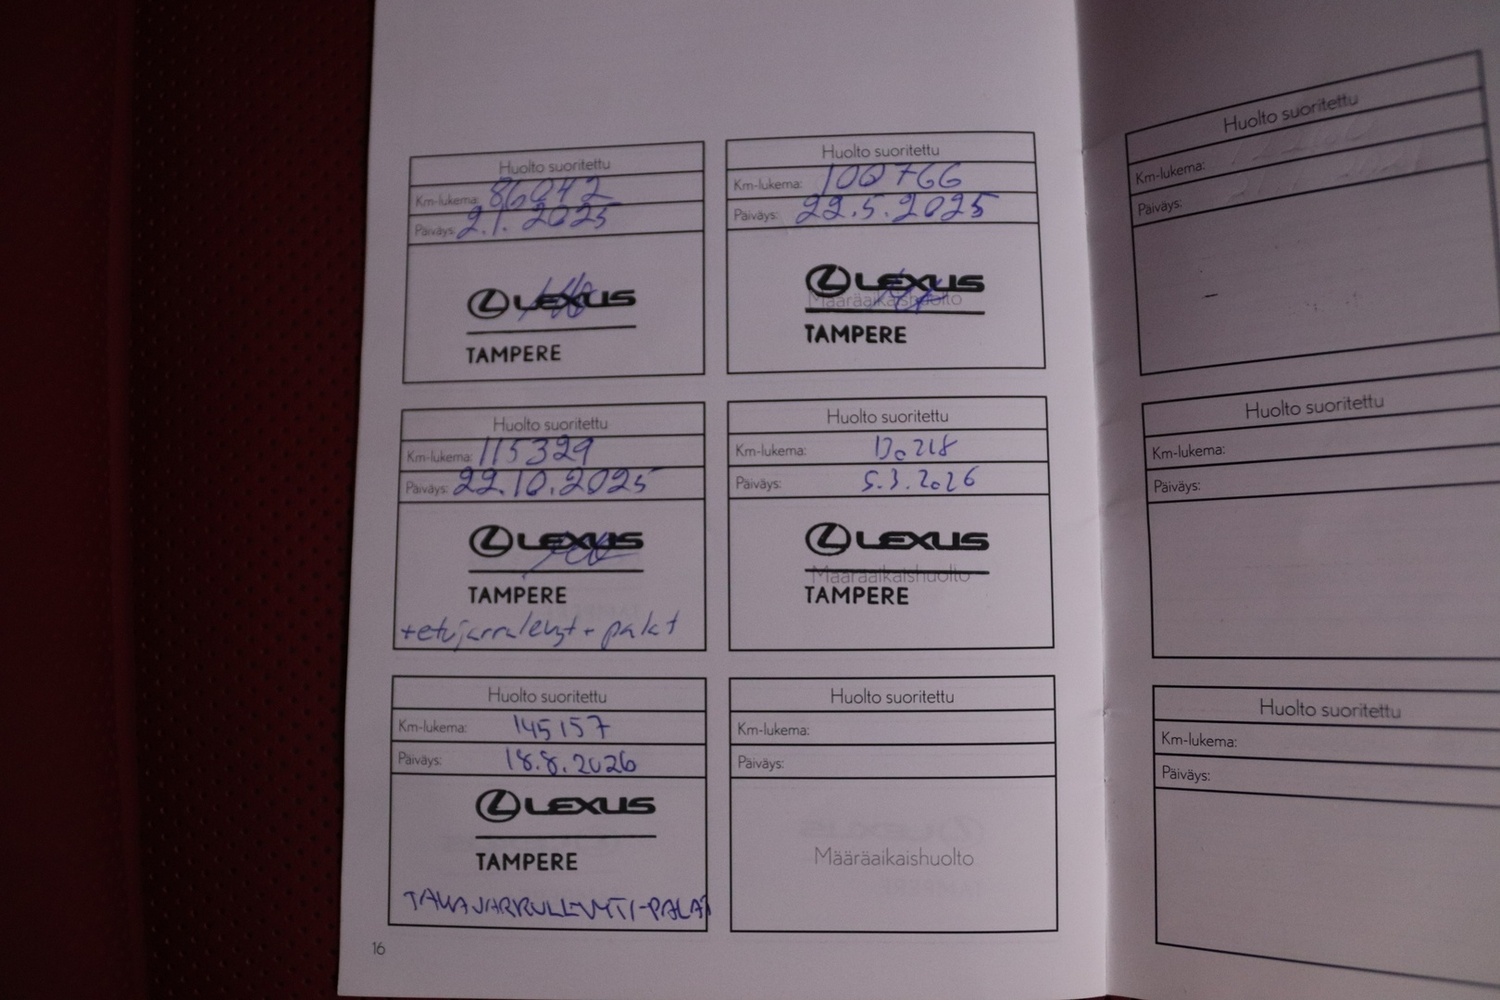 Huolto suoritettu
Km-lukema: 86042
Päiväys: 2.1.2025
LEXUS
TAMPERE
Huolto suoritettu
Km-lukema: 100766
Päiväys: 22.5.2025
LEXUS
Määräaikaishuolto
TAMPERE
Huolto suoritettu
Km-lukema: 115329
Päiväys: 22.10.2025
LEXUS
TAMPERE
+etujarrulevyt + palat
Huolto suoritettu
Km-lukema:
Päiväys: 5.3.2026
LEXUS
Määräaikaishuolto
TAMPERE
Huolto suoritettu
Km-lukema: 145157
Päiväys: 18.8.2026
LEXUS
TAMPERE
TAKAJARRULEVYTI-PALAT
Huolto suoritettu
Km-lukema:
Päiväys:
Määräaikaishuolto
16
Huolto suoritettu
Km-lukema:
Päiväys:
Huolto suoritettu
Km-lukema:
Päiväys:
Huolto suoritettu
Km-lukema:
Päiväys: